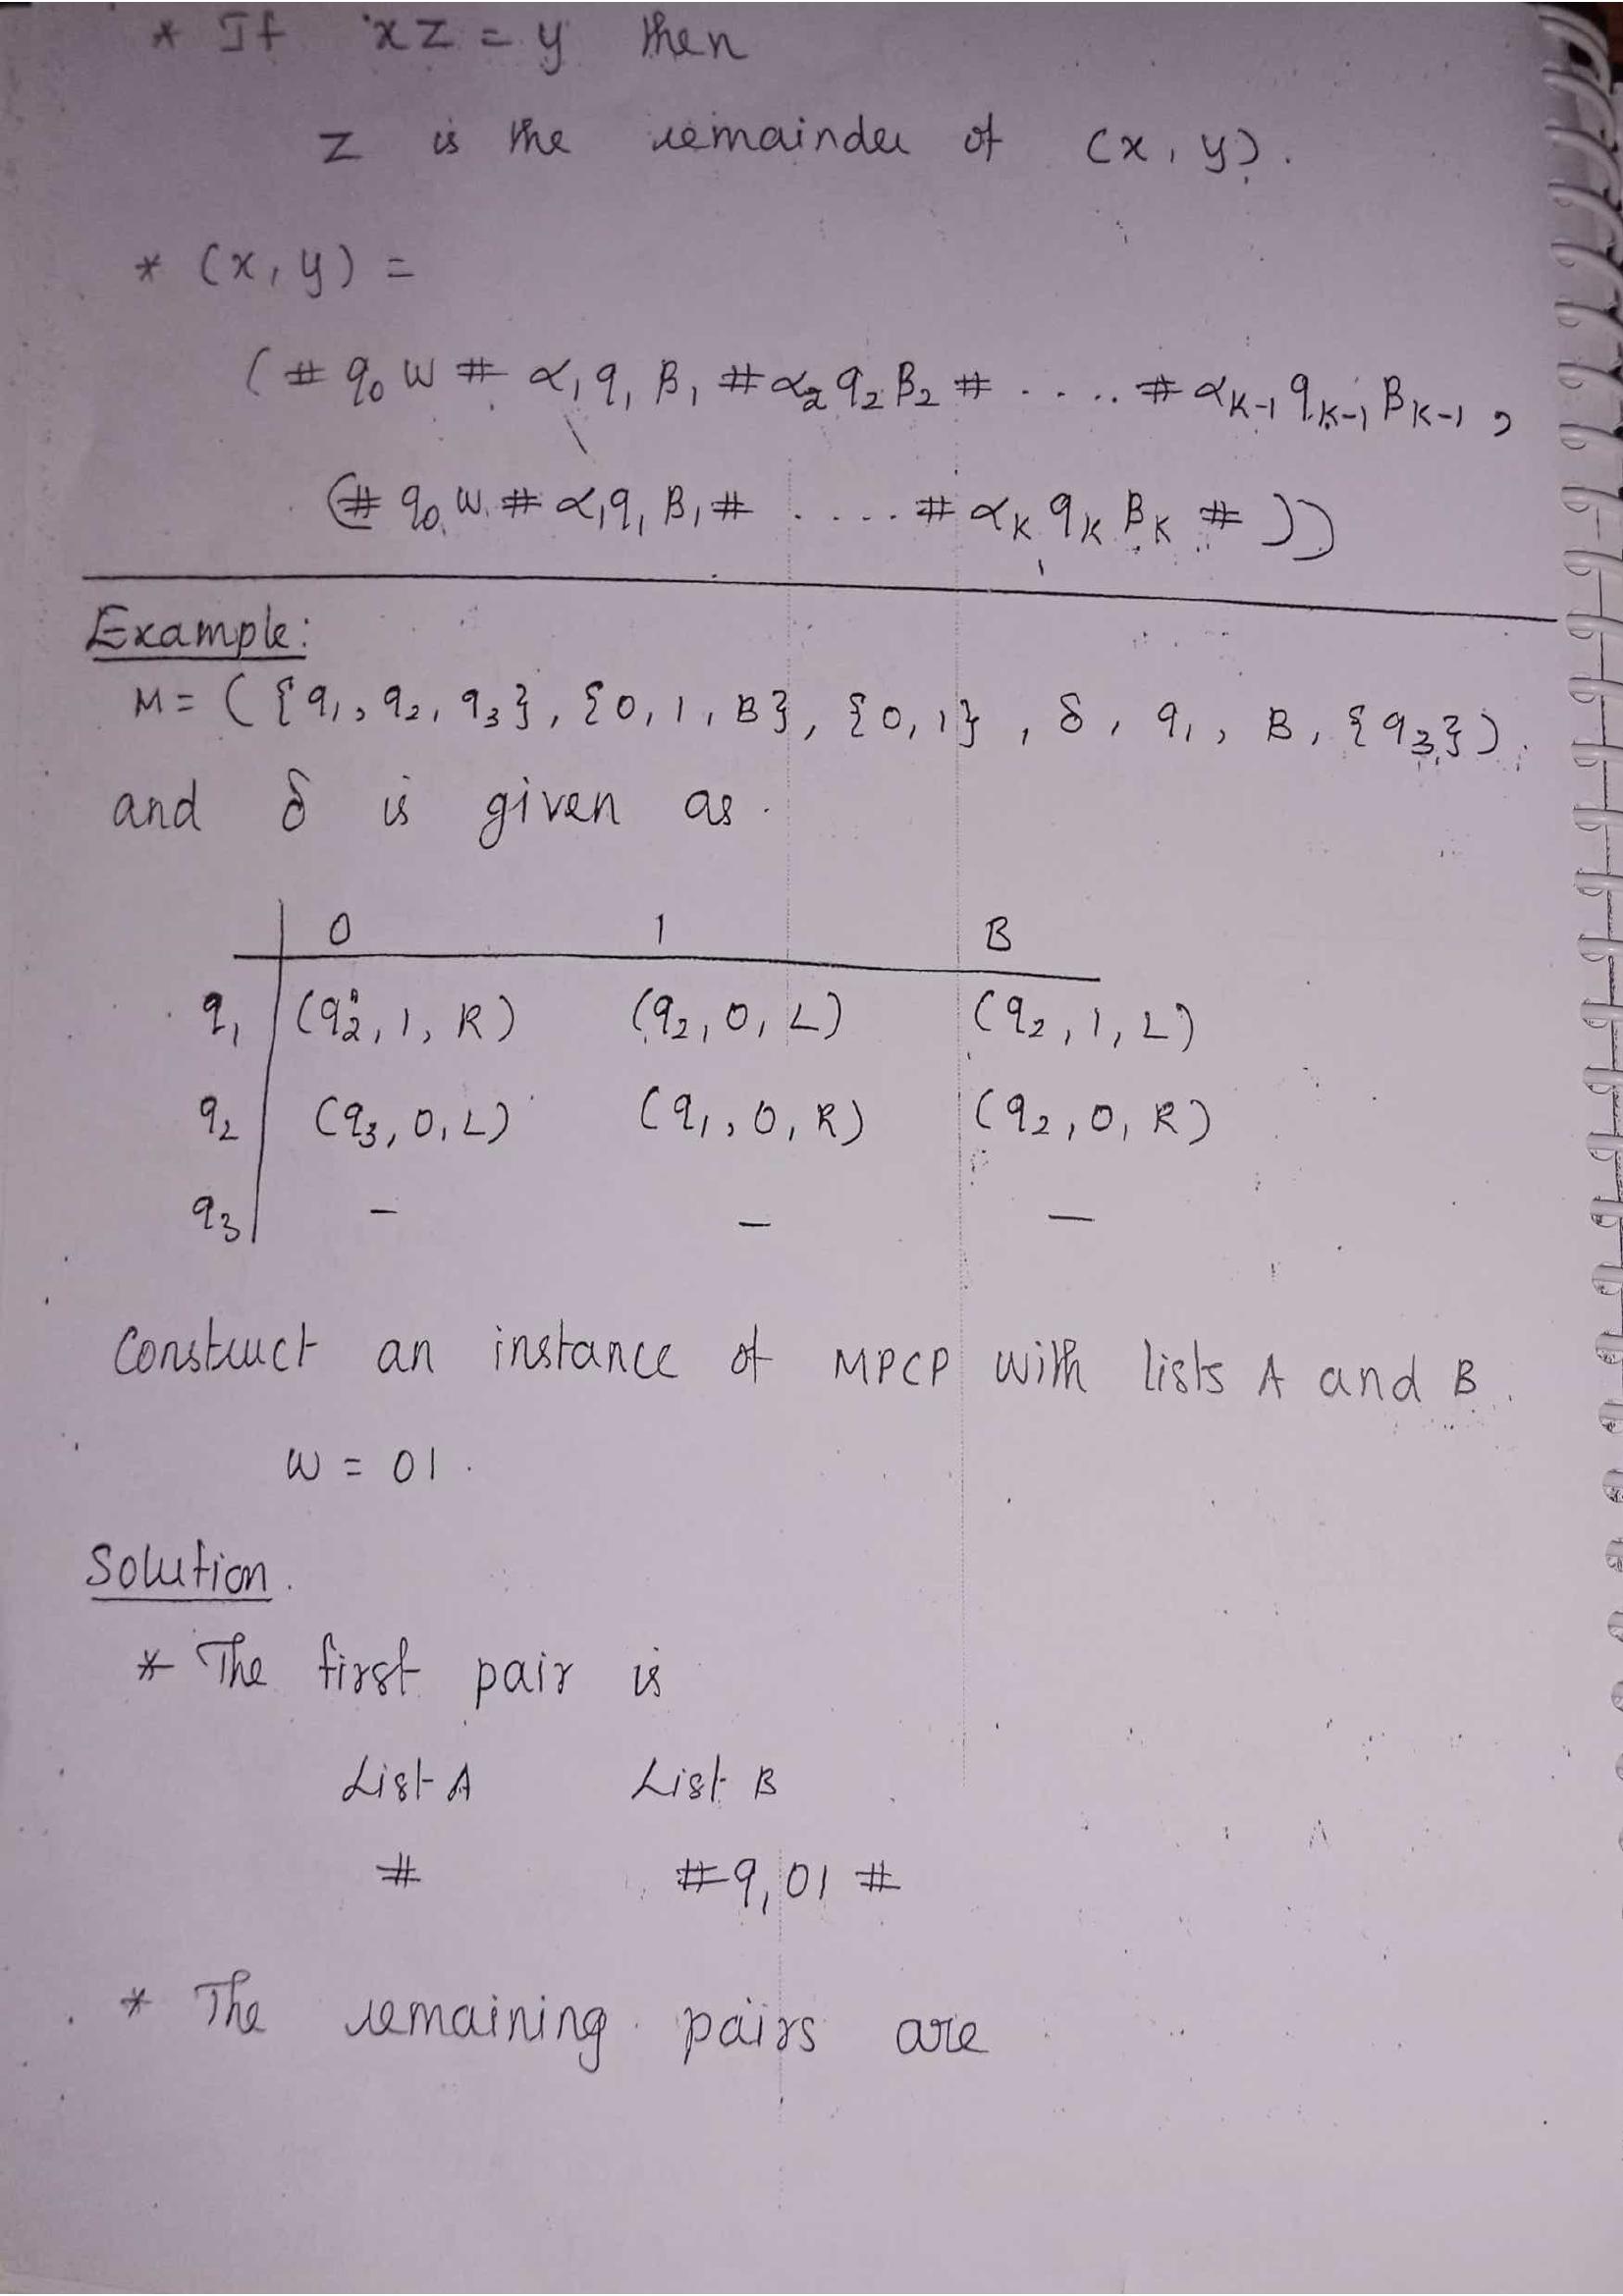 * If xz = y then
z is the remainder of (x, y).
* (x, y) =
(# q₀ w # α₁ q₁ β₁ # α₂ q₂ β₂ # ..... # αₖ₋₁ qₖ₋₁ βₖ₋₁ ,
(# q₀ w # α₁ q₁ β₁ # ..... # αₖ qₖ βₖ # ))
Example:
M = ({q₁, q₂, q₃}, {0, 1, B}, {0, 1}, δ, q₁, B, {q₃}).
and δ is given as.
0 1 B
q₁ (q₂, 1, R) (q₂, 0, L) (q₂, 1, L)
q₂ (q₃, 0, L) (q₁, 0, R) (q₂, 0, R)
q₃ – – –
Construct an instance of MPCP with lists A and B.
w = 01.
Solution.
* The first pair is
List A List B
# #q₁01#
* The remaining pairs are